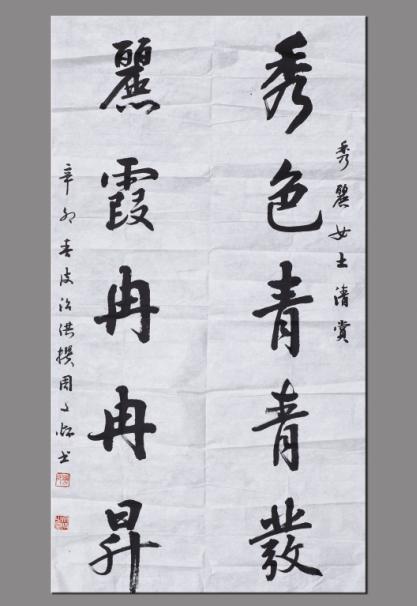 秀麗女士清賞
秀色青青發
麗霞冉冉昇
辛卯春皮治洪撰周書